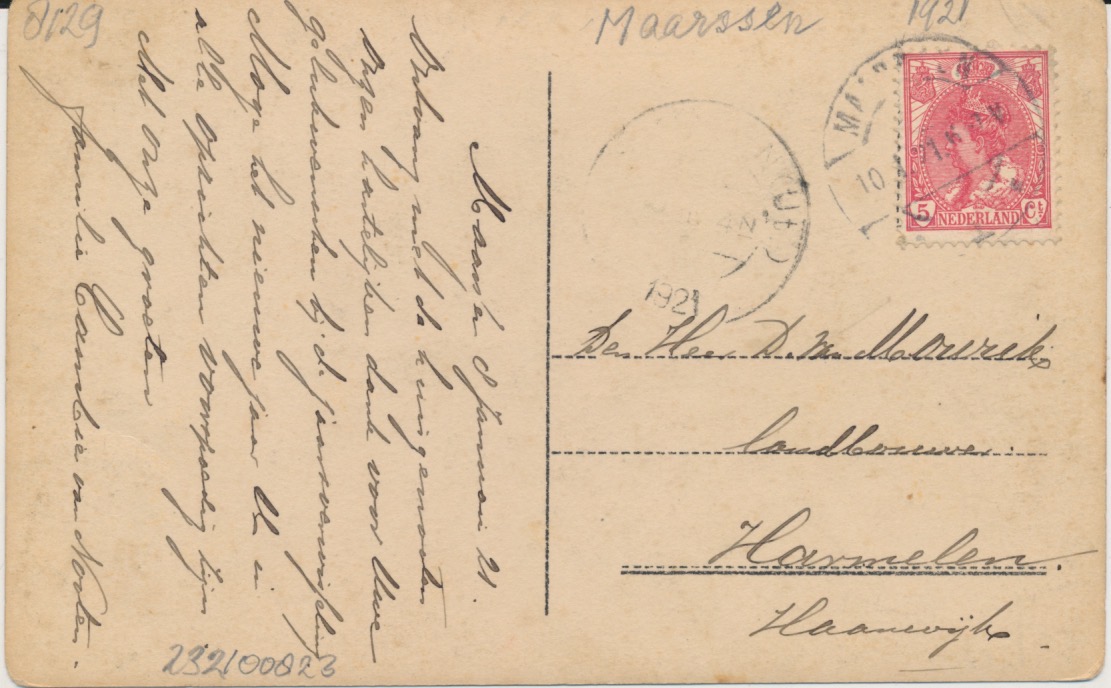 8129
Maarssen
1921
MAARSSEN
10
5 Ct
NEDERLAND
4-5N
1921
Maarssen Januari 21.
Ontvang met de huisgenooten
onzen hartelijken dank voor Uwe
gelukwenschen bij de jaarswisseling
Moge het nieuwe jaar U in
alle opzichten voorspoedig zijn
Met onze groeten
Familie van Nooten.
Den Heer D. v. Mourik
landbouwer
Harmelen.
Haanwijk
232100823